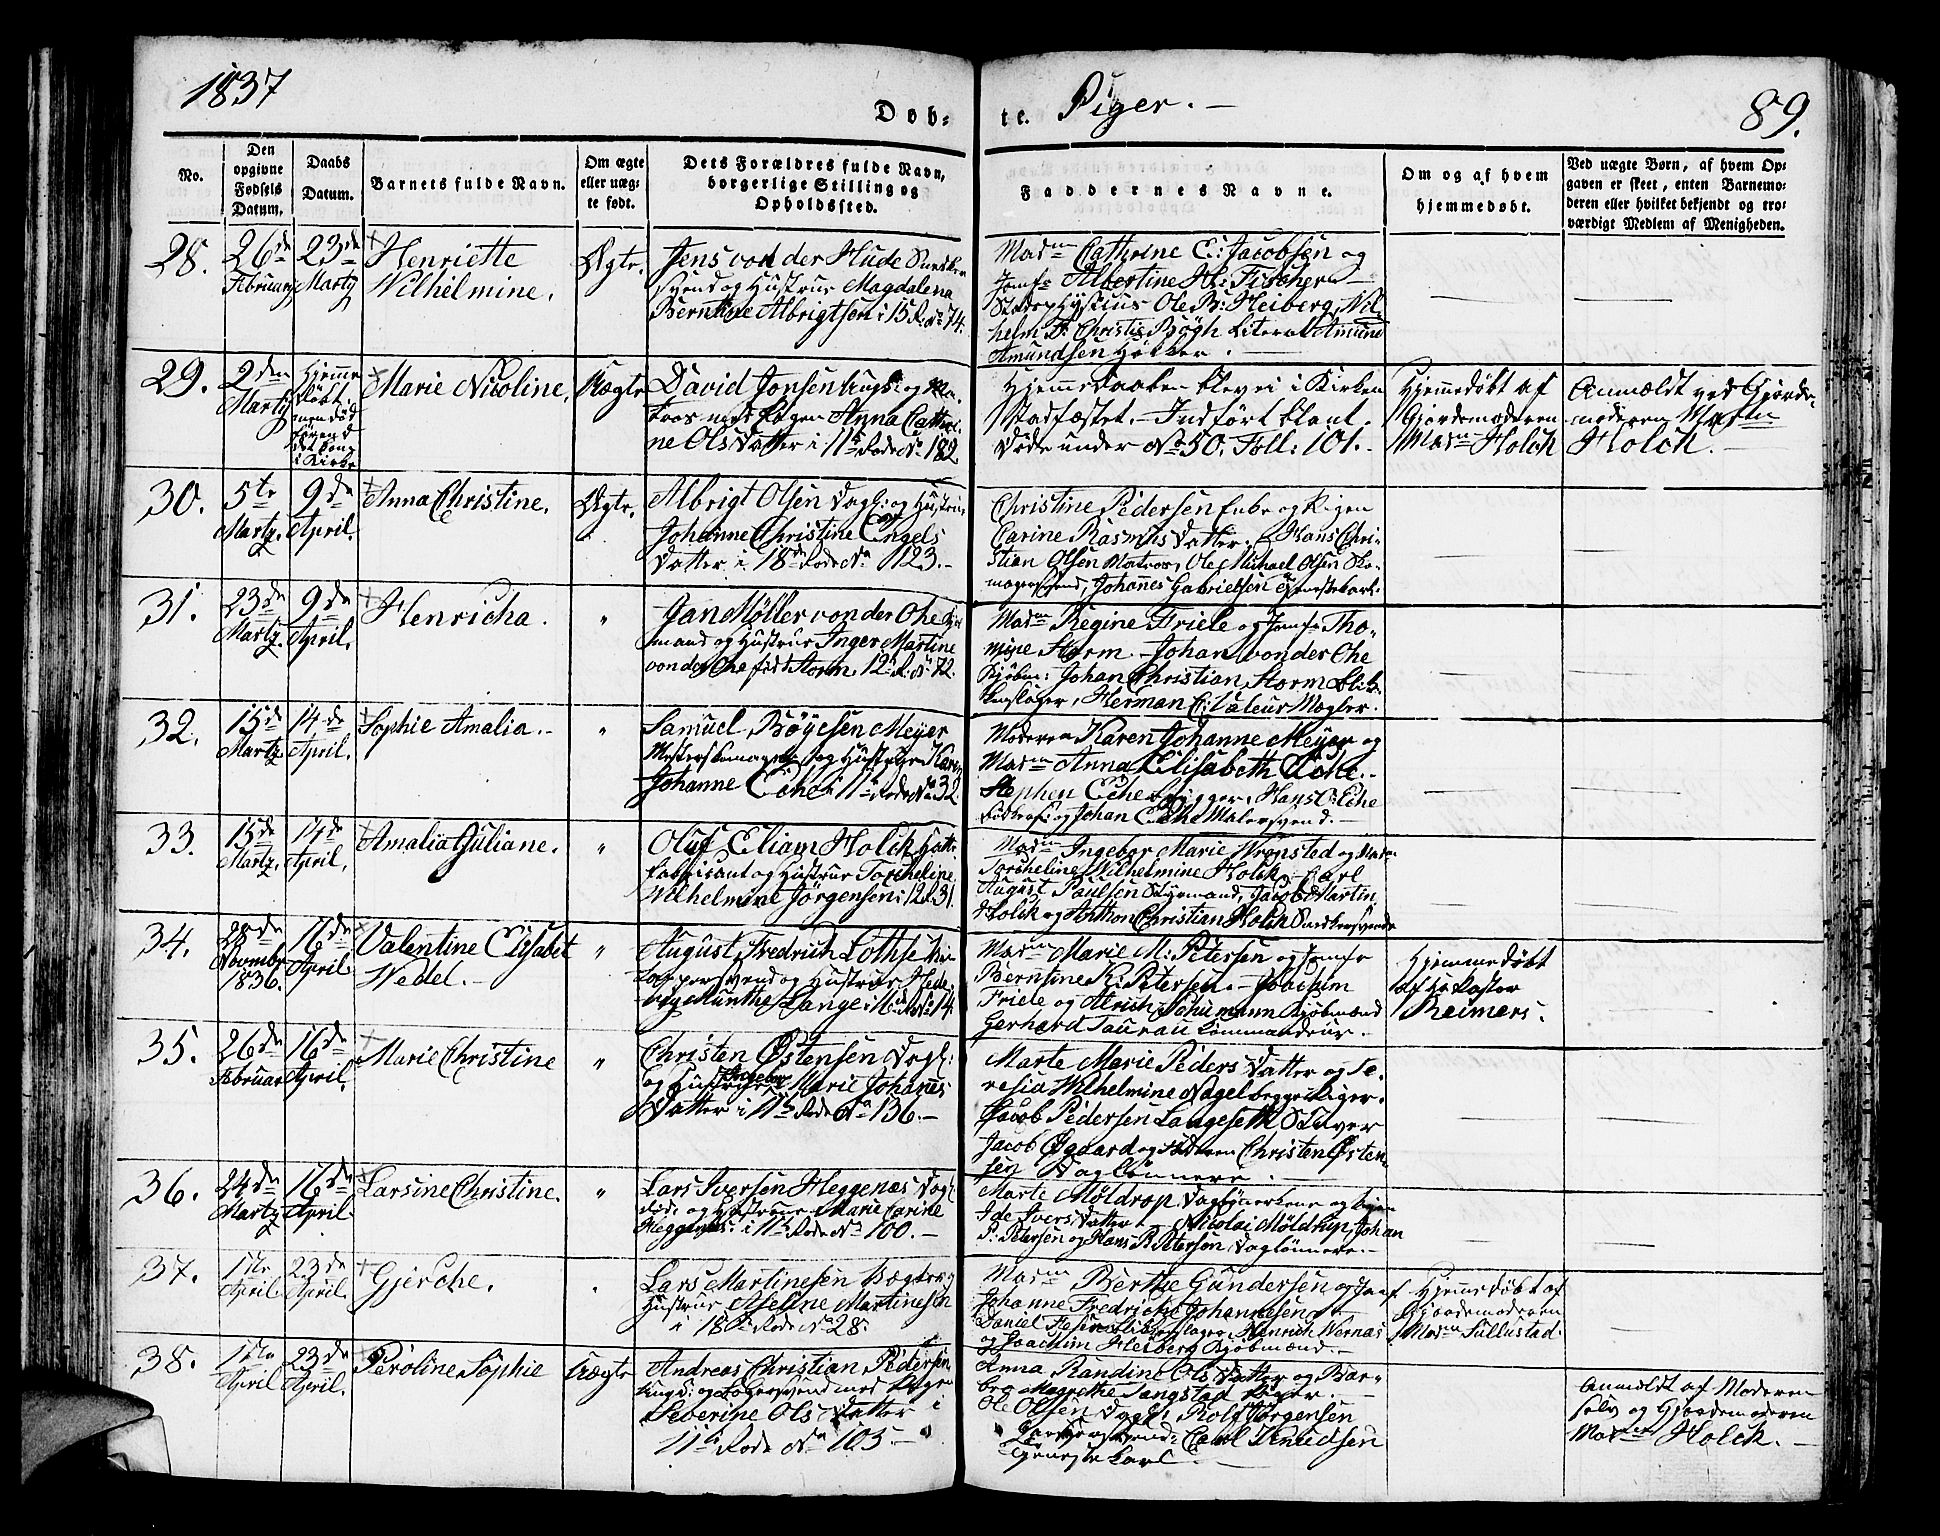 1837
Døb-
te.
Piger. —
89.
No.
Den opgivne Fødsels Datum.
Daabs Datum.
Barnets fulde Navn.
Om ægte eller uægte født.
Dets Forældres fulde Navn, borgerlige Stilling og Opholdssted.
Faddernes Navne.
Om og af hvem hjemmedøbt.
Ved uægte Børn, af hvem Opgaven er skeet, enten Barnemoderen eller hvilket bekjendt og troværdigt Medlem af Menigheden.
28.
26de Februar
23de Martz
Henriette
Wilhelmine.
Ægte.
Jens von der Hude
svend og Hustrue Magdalena
Berntine Albrigtsen i 15 R. No 74.
Madm Catherine C: Jacobsen og
Jomfr Albertine H: Fischer —
Stadsphysicus Ole B: Heiberg, Wil-
helm F: Christie Bøgh Literat Amund
Amundsen Høker.
29.
2den Martz
Hjemme døbt
Marie Nicoline.
Uægte
David Jonsen Ungk: og Ma-
tros med Pigen Anna Cathri-
ne Ols Datter i 11te Rode No 182
Hjemmedaaben blev ei i Kirken
stadfæstet. — Indført blant
Døde under No 50. Foll: 101. —
Hjemmedøbt af
Gjordemoderen
Madm Holck
Anmeldt ved Gjorde-
moderen Madm
Holck. —
30.
5te Martz.
9de April.
Anna Christine.
Ægte.
Albrigt Olsen Dagl: og Hustrue
Johanne Christine Engels
Datter i 18de Rode No 123. —
Christine Pedersen Enke og Pigen
Carine Rasmus Datter. — Hans Chri-
stian Olsen Matros, Ole Michael Olsen Sko-
magersvend, Johannes Gabrielsen Tjenestekarl.
31.
23de Martz.
9de April.
Henricha.
"
Jan Møller von der Ohe
mand og Hustrue Inger Martine
von der Ohe fød Storm. 12te R. No 72.
Madm Regine Friele og Jomfr Tho-
mine Storm. — Johan von der Ohe
Kjøbm: Johan Christian Storm Blik-
kenslager, Herman C: Valeur Mægler.
32.
15de Martz.
14de April.
Sophie Amalia. —
"
Samuel Bøyesen Meyer
og Hustrue Karen
Johanne Eche i 11te Rode No 32.
Moderen Karen Johanne Meyer og
Madm Anna Elisabeth Eche. —
Stephen Eche Brygger, Hans C: Eche
og Johan Eche Malersvend. —
33.
15de Martz.
14de April.
Amalia Juliane.
"
Oluf Eliam Holck Hatte-
fabrikant og Hustrue Torcheline
Wilhelmine Jørgensen i 12 R 31.
Madm Ingebor Marie Wrensted og Madm
Torcheline Wilhelmine Holck. — Carl
August Paulsen Styrmand, Jacob Martin
Holck og Anthon Christian Holck
34.
November 1836.
16de April.
Valentine Elisabet
Wedel. —
"
August Fredrich Lothse
svend og Hustrue Hede-
vig Munthe Lange i 16 R. No 14.
Madm Marie M: Petersen og Jomfr
Berntine K: Petersen. — Joachim
Friele og Alrich Schumann Kjøbmænd
Gerhard Taurau Commandeur.
Hjemmedøbt
af Hr Pastor
Reimers.
35.
26de Februar
16de April.
Marie Christine
"
Christen Østensen Dagl:
og Hustrue Ingebor Marie Johannes
Datter i 11te Rode No 136. —
Marte Marie Peders Datter og Te-
resia Wilhelmine Nagel begge Piger.
Jacob Pedersen Langeseth
Jacob Øgaard og Faderen Christen Østen-
sen Daglønnere.
36.
24de Martz
16de April.
Larsine Christine.
"
Lars Iversen Heggenæs Dagl
og Hustrue Marie Carine
Heggenæs: i 11te Rode No 100. —
Marte Møldrop, Daglønnerkone og Pigen
Ide Ivers Datter. — Nicolai Møldrup, Johan
P: Petersen og Hans R. Petersen, Daglønnere. —
37.
1ste April.
23de April.
Gjerche.
Lars Martinesen Vægter og
Hustrue Aseline Martinesen
i 18de Rode No 28.
Madm Berthe Gundersen og Jomf
Johanne Fredriche Johannesen. —
Daniel Blikkenslager, Henrich Wernas
og Joachim Heiberg Kjøbmænd. —
Hjemmedøbt af
Gjordemoderen
Madm Sullustad.
38.
1ste April
23de April.
Peroline Sophie
Uægte
Andreas Christian Pedersen
Ungk: og med Pigen
Severine Ols Datter i
11te Rode No 105. —
Anna Randine Ols Datter og Bar-
bra Magrethe Sangstad Piger.
Ole Olsen Dagl: Rolf Jørgensen
Carl Knudsen
Tjenestekarl.
Anmeldt af Moderen
selv og Gjordemoderen
Madm Holck. —